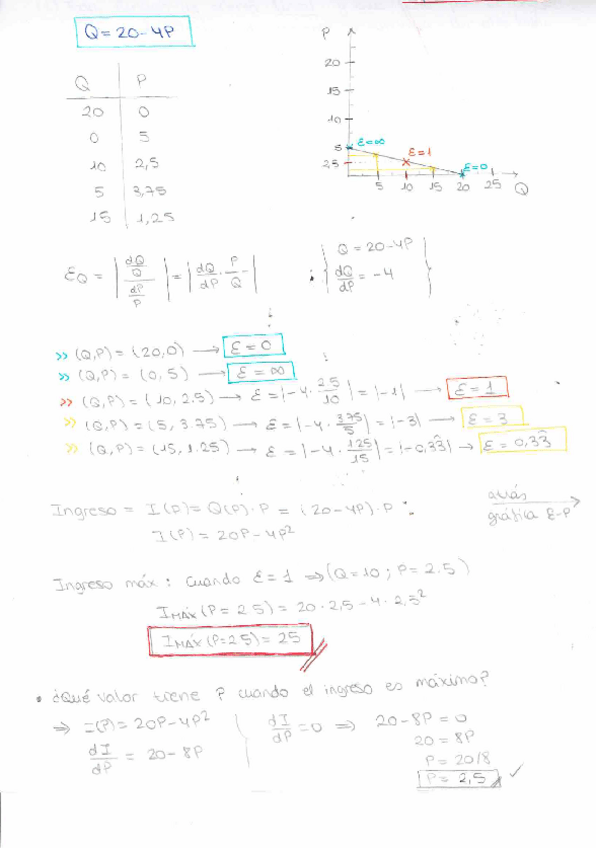 Q = 20 - 4P
Q P
20 0
0 5
10 2,5
5 3,75
15 1,25
P
20
15
10
5
25
ε=∞
ε=1
ε=0
5 10 15 20 25 Q
εQ = | (dQ/Q) / (dP/P) | = | dQ/dP · P/Q |
Q = 20-4P
dQ/dP = -4
>> (Q,P) = (20,0) → ε = 0
>> (Q,P) = (0,5) → ε = ∞
>> (Q,P) = (10,2.5) → ε = |-4 · 25/10| = |-1| → ε = 1
>> (Q,P) = (5,3.75) → ε = |-4 · 375/5| = |-3| → ε = 3
>> (Q,P) = (15,1.25) → ε = |-4 · 125/15| = |-0,33̂| → ε = 0,33̂
Ingreso = I(P) = Q(P)·P = (20-4P)·P
I(P) = 20P - 4P²
atrás
gráfica ε-P
Ingreso máx: cuando ε = 1 ⇒ (Q=10; P=2.5)
IMÁX (P=25) = 20·2,5 - 4·2,5²
IMÁX (P=25) = 25
• ¿Qué valor tiene P cuando el ingreso es máximo?
⇒ I(P) = 20P - 4P²
dI/dP = 20 - 8P
dI/dP = 0 ⇒ 20 - 8P = 0
20 = 8P
P = 20/8
P = 2,5 ✓